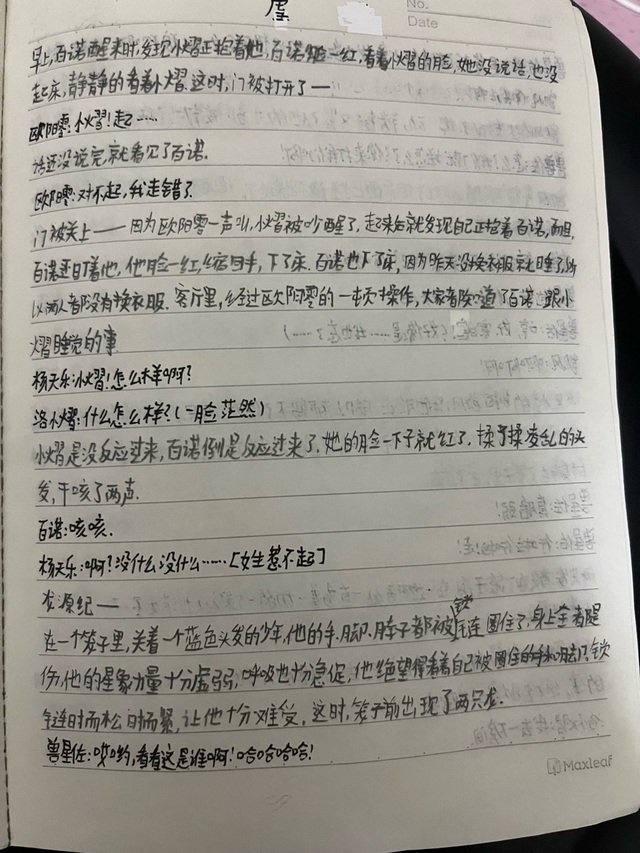 虐
No.
Date
早上,百诺醒来时,发现小熠正抱着她,百诺脸一红,看着小熠的脸,她没说话,也没
起床,静静的看着小熠.这时,门被打开了——
欧阳零:小熠!起……
话还没说完,就看见了百诺.
欧阳零:对不起,我走错了.
门被关上——因为欧阳零一声叫,小熠被吵醒了,起来后就发现自己正抱着百诺,而且,
百诺还盯着他,他脸一红,缩回手,下了床.百诺也下了床,因为昨天没换衣服就睡了,所
以两人都没有换衣服.客厅里,经过欧阳零的一顿操作,大家都知道了百诺跟小
熠睡觉的事.
杨天乐:小熠!怎么样啊?
洛小熠:什么怎么样?(一脸茫然)
小熠是没反应过来,百诺倒是反应过来了.她的脸一下子就红了.揉了揉凌乱的头
发,干咳了两声.
百诺:咳咳.
杨天乐:啊?没什么没什么……[女生惹不起]
龙源纪——
在一个笼子里,关着一个蓝色头发的少年,他的手.脚.脖子都被铁链圈住了,身上全都是
伤,他的星象力量十分虚弱,呼吸也十分急促,他绝望得看着自己被圈住的手和脚,铁
链时而松时而紧,让他十分难受.这时,笼子前出现了两只龙.
兽星佐:哎哟,看看这是谁啊!哈哈哈哈!
Maxleaf